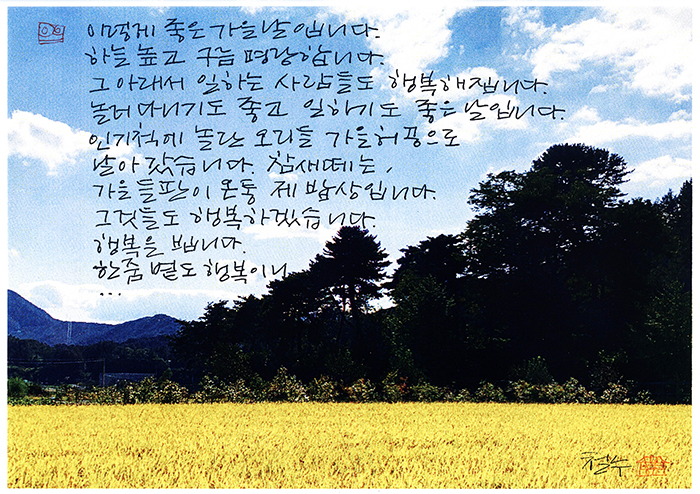 이렇게 좋은 가을날입니다.
하늘 높고 구름 명랑합니다.
그 아래서 일하는 사람들도 행복해집니다.
놀러다니기도 좋고 일하기도 좋은 날입니다.
인기척에 놀란 오리들 가을허공으로
날아갔습니다. 참새떼는,
가을들판이 온통 제 밥상입니다.
그것들도 행복하겠습니다.
행복을 봅니다.
한줌 볕도 행복이니
...
철수